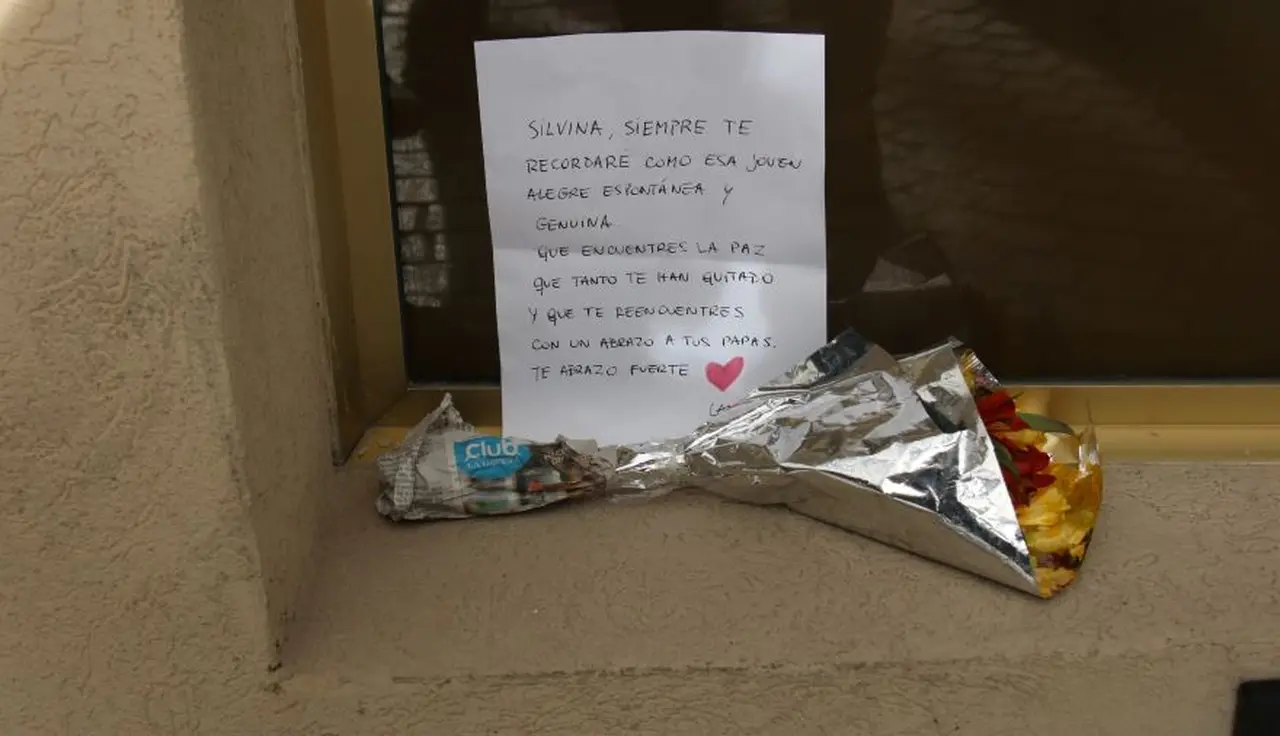 SILVINA, SIEMPRE TE
RECORDARÉ COMO ESA JOVEN
ALEGRE ESPONTÁNEA Y
GENUINA.
QUE ENCUENTRES LA PAZ
QUE TANTO TE HAN QUITADO
Y QUE TE REENCUENTRES
CON UN ABRAZO A TUS PAPAS.
TE ABRAZO FUERTE
Club